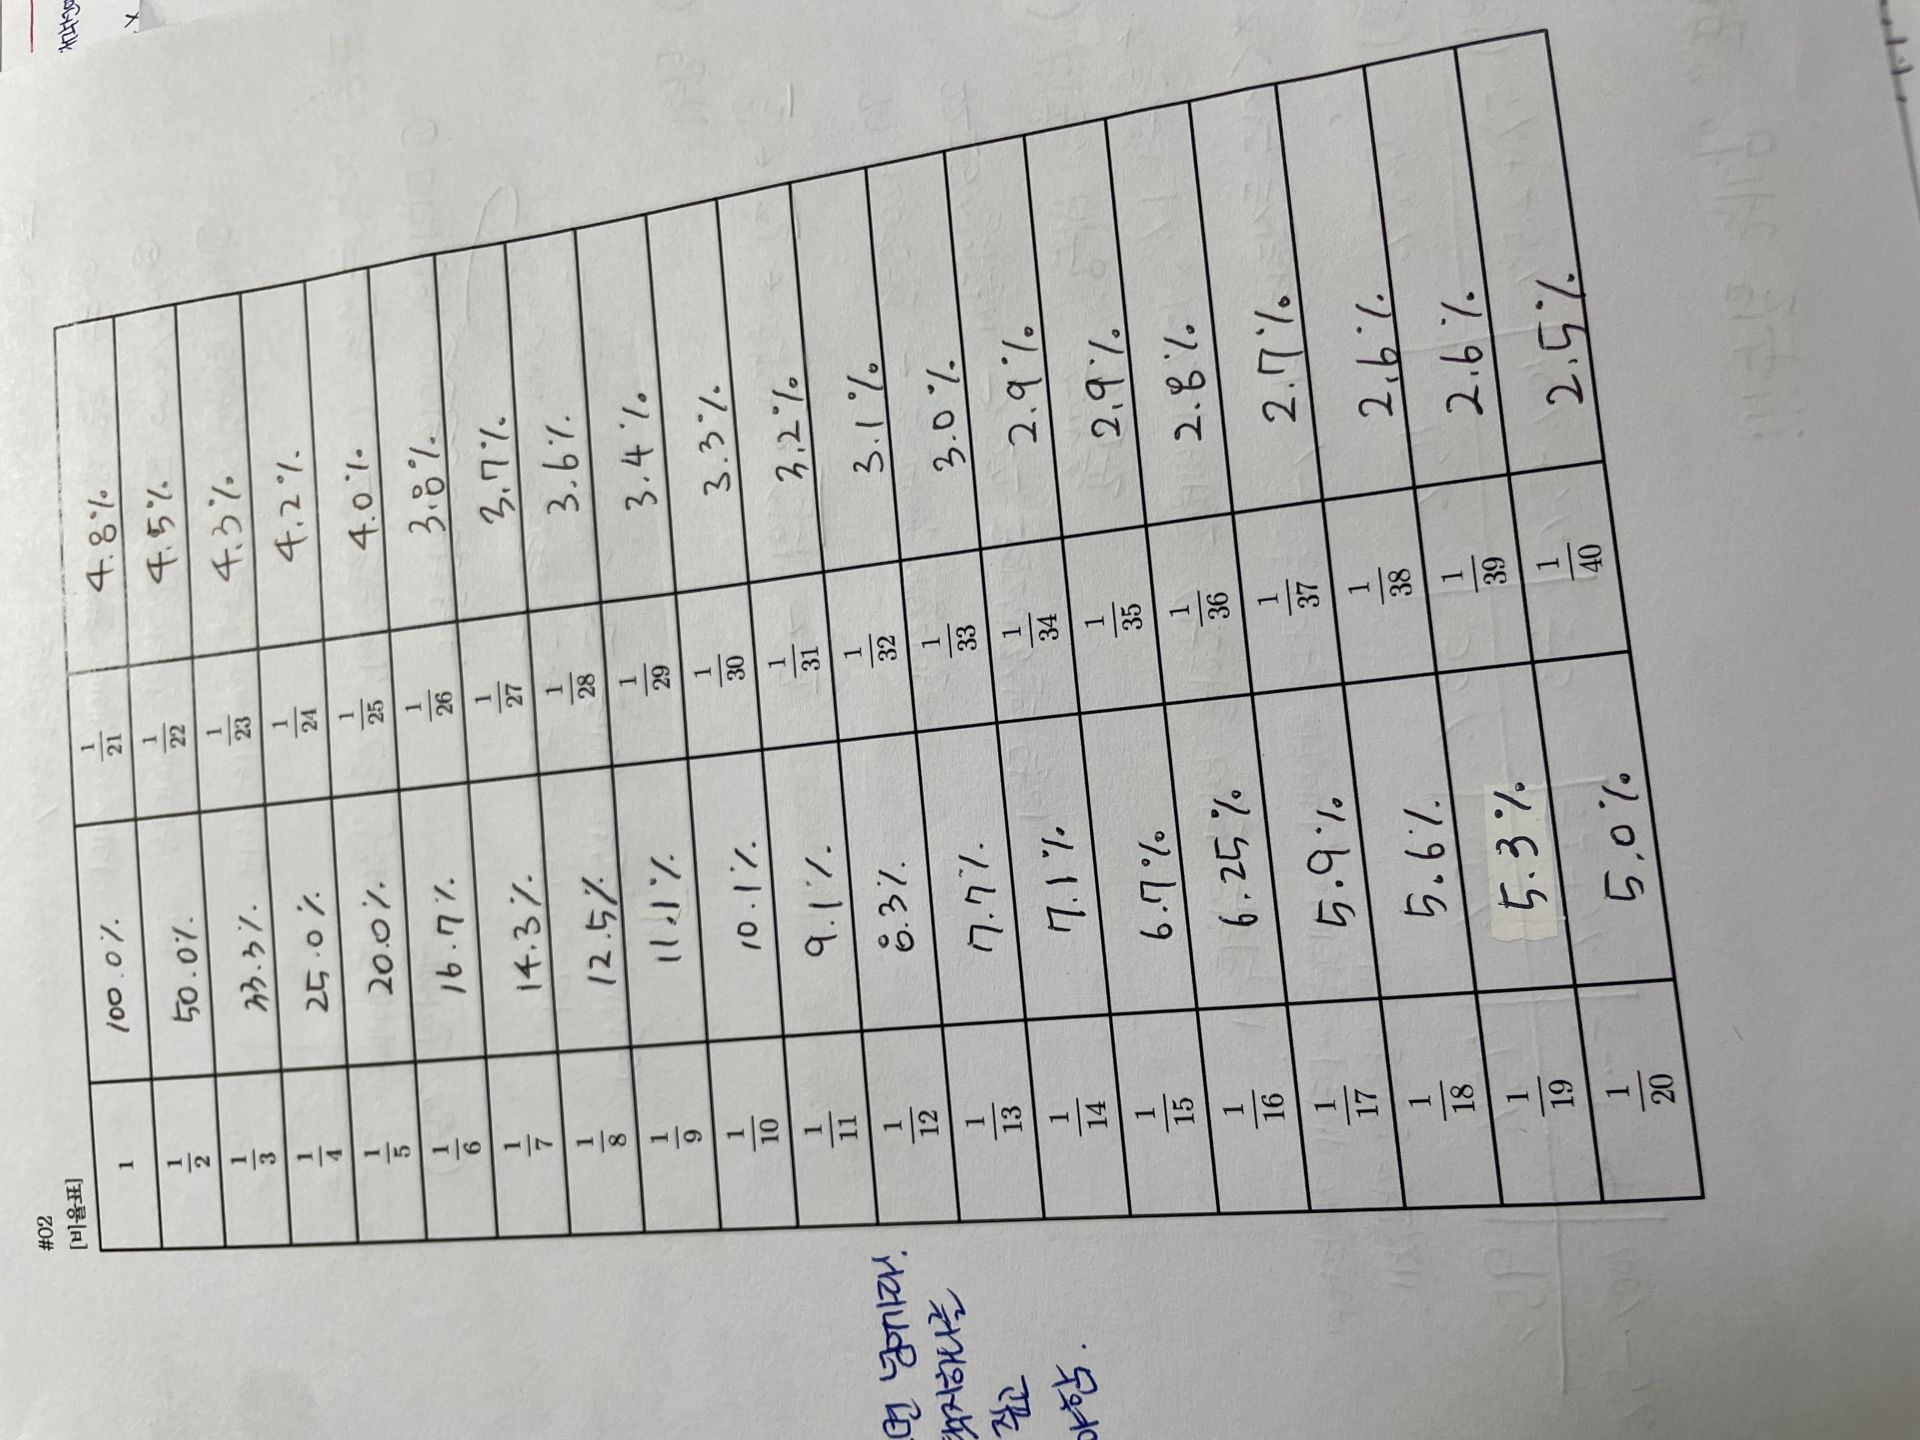 #02
[비율표]
1 100.0% 1/21 4.8%
1/2 50.0% 1/22 4.5%
1/3 33.3% 1/23 4.3%
1/4 25.0% 1/24 4.2%
1/5 20.0% 1/25 4.0%
1/6 16.7% 1/26 3.8%
1/7 14.3% 1/27 3.7%
1/8 12.5% 1/28 3.6%
1/9 11.1% 1/29 3.4%
1/10 10.1% 1/30 3.3%
1/11 9.1% 1/31 3.2%
1/12 8.3% 1/32 3.1%
1/13 7.7% 1/33 3.0%
1/14 7.1% 1/34 2.9%
1/15 6.7% 1/35 2.9%
1/16 6.25% 1/36 2.8%
1/17 5.9% 1/37 2.7%
1/18 5.6% 1/38 2.6%
1/19 5.3% 1/39 2.6%
1/20 5.0% 1/40 2.5%
넘기자.